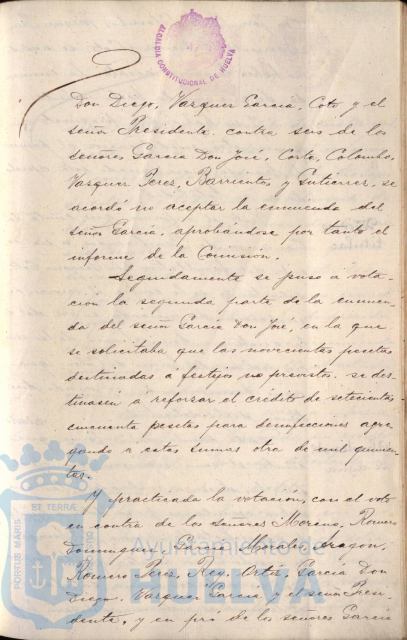 ALCALDIA CONSTITUCIONAL DE HUELVA
Don Diego, Vazquez Garcia, Coto y el
señor Presidente contra seis de los
señores Garcia Don José, Corte, Colombo,
Vazquez Perez, Barrientos y Gutierrez, se
acordó no aceptar la enmienda del
señor Garcia, aprobándose por tanto el
informe de la Comisión.
Seguidamente se puso á vota-
ción la segunda parte de la enmien-
da del señor Garcia Don José, en la que
se solicitaba que las novecientas pesetas
destinadas á festejos no previstos se des-
tinasen á reforzar el crédito de setecientas
cincuenta pesetas para desinfecciones agre-
gando a estas sumas otra de mil quinien-
tas.
Y practicada la votación, con el voto
en contra de los señores Moreno, Romero
Dominguez, Garcia Aragon,
Romero Perez, Rey, Ortiz, Garcia Don
Diego, Vazquez Garcia y el señor Presi-
dente, y en pró de los señores Garcia
PORTUS MARIS ET TERRÆ
Ayuntamiento de
HUELVA